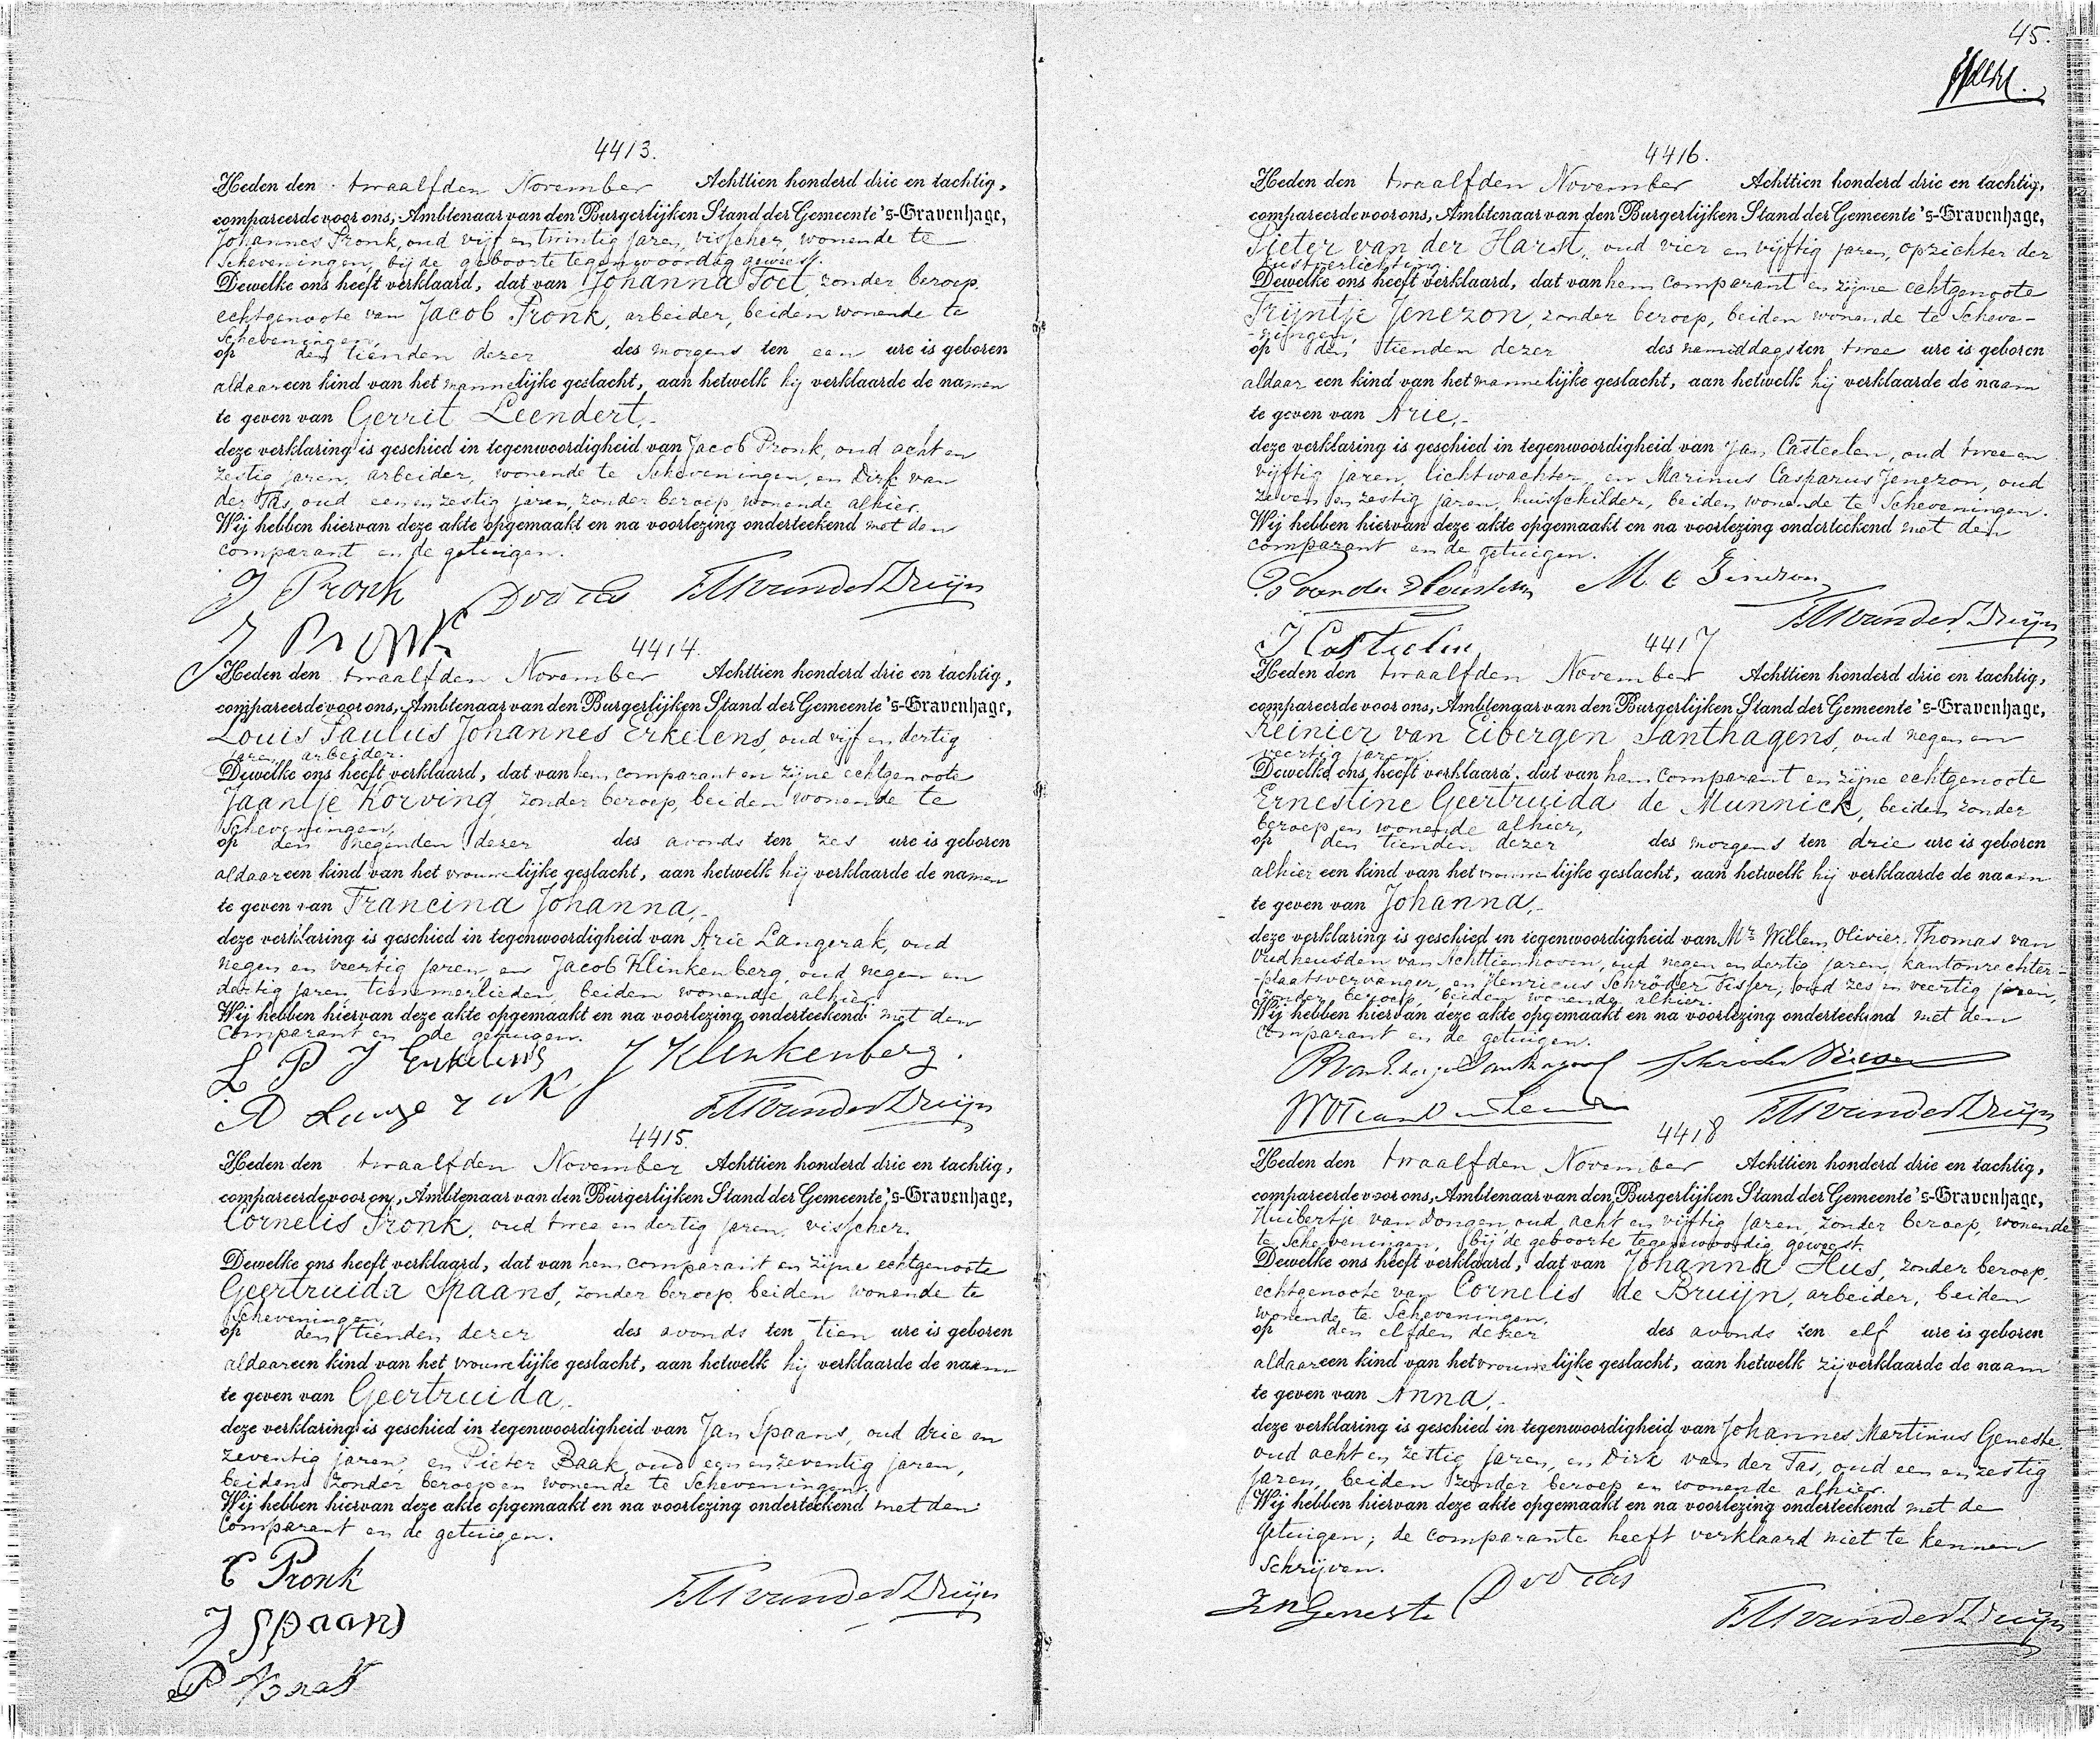 4413.
Heden den twaalfden November Achttien honderd drie en tachtig,
compareerde voor ons, Ambtenaar van den Burgerlijken Stand der Gemeente 's-Gravenhage,
Johannes Pronk, oud vijf en twintig jaren, visscher, wonende te
Scheveningen, bij de geboorte tegenwoordig geweest.
Dewelke ons heeft verklaard, dat van Johanna Toet, zonder beroep,
echtgenoote van Jacob Pronk, arbeider, beiden wonende te
Scheveningen,
op den tienden dezer des morgens ten een ure is geboren
aldaar een kind van het mannelijke geslacht, aan hetwelk hij verklaarde de namen
te geven van Gerrit Leendert,-
deze verklaring is geschied in tegenwoordigheid van Jacob Pronk, oud acht en
zestig jaren, arbeider, wonende te Scheveningen, en Dirk van
der Tas, oud een en zestig jaren, zonder beroep, wonende alhier.
Wij hebben hiervan deze akte opgemaakt en na voorlezing onderteekend met den
comparant en de getuigen.
J Pronk D v d Tas
J Pronk
4414.
Heden den twaalfden November Achttien honderd drie en tachtig,
compareerde voor ons, Ambtenaar van den Burgerlijken Stand der Gemeente 's-Gravenhage,
Louis Paulus Johannes Erkelens, oud vijf en dertig
jaren, arbeider.
Dewelke ons heeft verklaard, dat van hem comparant en zijne echtgenoote
Jaantje Korving, zonder beroep, beiden wonende te
Scheveningen,
op den negenden dezer des avonds ten zes ure is geboren
aldaar een kind van het vrouwelijke geslacht, aan hetwelk hij verklaarde de namen
te geven van Francina Johanna,-
deze verklaring is geschied in tegenwoordigheid van Arie Langerak, oud
negen en veertig jaren, en Jacob Klinkenberg, oud negen en
dertig jaren, timmerlieden, beiden wonende alhier.
Wij hebben hiervan deze akte opgemaakt en na voorlezing onderteekend met den
comparant en de getuigen.
L P J Erkelens J Klinkenberg.
A Langerak
4415.
Heden den twaalfden November Achttien honderd drie en tachtig,
compareerde voor ons, Ambtenaar van den Burgerlijken Stand der Gemeente 's-Gravenhage,
Cornelis Pronk, oud twee en dertig jaren, visscher.
Dewelke ons heeft verklaard, dat van hem comparant en zijne echtgenoote
Geertruida Spaans, zonder beroep, beiden wonende te
Scheveningen,
op den tienden dezer des avonds ten tien ure is geboren
aldaar een kind van het vrouwelijke geslacht, aan hetwelk hij verklaarde de naam
te geven van Geertruida,-
deze verklaring is geschied in tegenwoordigheid van Jan Spaans, oud drie en
zeventig jaren, en Pieter Baak, oud een en zeventig jaren,
beiden zonder beroep en wonende te Scheveningen.
Wij hebben hiervan deze akte opgemaakt en na voorlezing onderteekend met den
comparant en de getuigen.
C Pronk
J Spaans
P Baak
45.
4416.
Heden den twaalfden November Achttien honderd drie en tachtig,
compareerde voor ons, Ambtenaar van den Burgerlijken Stand der Gemeente 's-Gravenhage,
Pieter van der Harst, oud vier en vijftig jaren, opzichter der
kustverlichting.
Dewelke ons heeft verklaard, dat van hem comparant en zijne echtgenoote
Trijntje Jenezon, zonder beroep, beiden wonende te Scheve-
-ningen,
op den tienden dezer des namiddags ten twee ure is geboren
aldaar een kind van het mannelijke geslacht, aan hetwelk hij verklaarde de naam
te geven van Arie,-
deze verklaring is geschied in tegenwoordigheid van Jan Casteelen, oud twee en
vijftig jaren, lichtwachter, en Marinus Casparus Jenezon, oud
zeven en zestig jaren, huisschilder, beiden wonende te Scheveningen.
Wij hebben hiervan deze akte opgemaakt en na voorlezing onderteekend met den
comparant en de getuigen.
4417
Heden den twaalfden November Achttien honderd drie en tachtig,
compareerde voor ons, Ambtenaar van den Burgerlijken Stand der Gemeente 's-Gravenhage,
Reinier van Eibergen Santhagens, oud negen en
veertig jaren.
Dewelke ons heeft verklaard, dat van hem comparant en zijne echtgenoote
Ernestine Geertruida de Munnick, beiden zonder
beroep en wonende alhier,
op den tienden dezer des morgens ten drie ure is geboren
alhier een kind van het vrouwelijke geslacht, aan hetwelk hij verklaarde de naam
te geven van Johanna,-
deze verklaring is geschied in tegenwoordigheid van Mr. Willem Olivier Thomas van
Oudheusden van Achttienhoven, oud negen en dertig jaren, kantonrechter-
-plaatsvervanger, en Henricus Schröder Visser, oud zes en veertig jaren,
zonder beroep, beiden wonende alhier.
Wij hebben hiervan deze akte opgemaakt en na voorlezing onderteekend met den
comparant en de getuigen.
4418
Heden den twaalfden November Achttien honderd drie en tachtig,
compareerde voor ons, Ambtenaar van den Burgerlijken Stand der Gemeente 's-Gravenhage,
Huibertje van Dongen, oud acht en vijftig jaren, zonder beroep, wonende
te Scheveningen, bij de geboorte tegenwoordig geweest.
Dewelke ons heeft verklaard, dat van Johanna Hus, zonder beroep,
echtgenoote van Cornelis de Bruijn, arbeider, beiden
wonende te Scheveningen,
op den elfden dezer des avonds ten elf ure is geboren
aldaar een kind van het vrouwelijke geslacht, aan hetwelk zij verklaarde de naam
te geven van Anna,-
deze verklaring is geschied in tegenwoordigheid van Johannes Martinus Geneste,
oud acht en zestig jaren, en Dirk van der Tas, oud een en zestig
jaren, beiden zonder beroep en wonende alhier.
Wij hebben hiervan deze akte opgemaakt en na voorlezing onderteekend met de
getuigen; de comparante heeft verklaard niet te kennen
schrijven.
D v d Tas
Geneste